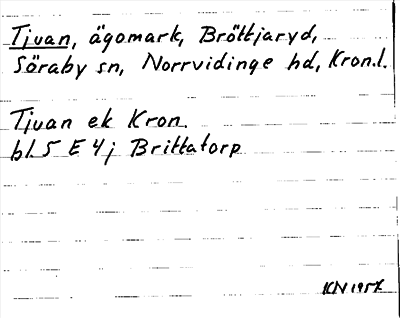 Tjuan, ägomark, Bröttjaryd,
Söraby sn, Norrvidinge hd, Kron.l.
Tjuan ek Kron.
bl. 5 E 4 j Brittatorp
KN 1957